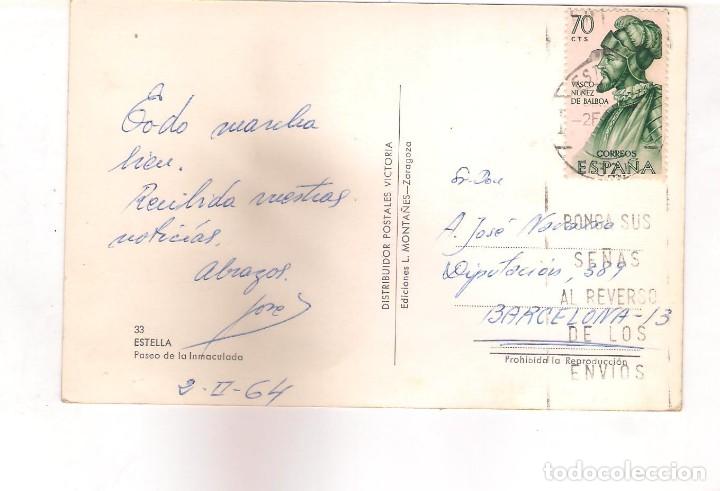 Todo marcha
bien.
Recibida vuestras
noticias.
Abrazos.
José
33
ESTELLA
Paseo de la Inmaculada
2-II-64
DISTRIBUIDOR POSTALES VICTORIA
Ediciones L. MONTAÑES—Zaragoza
70
CTS
VASCO
NUÑEZ
DE BALBOA
CORREOS
ESPAÑA
Sr. Don
A. José
Diputación, 389
BARCELONA-13
Prohibida la Reproducción
PONGA SUS
SEÑAS
AL REVERSO
DE LOS
ENVIOS
todocoleccion.net